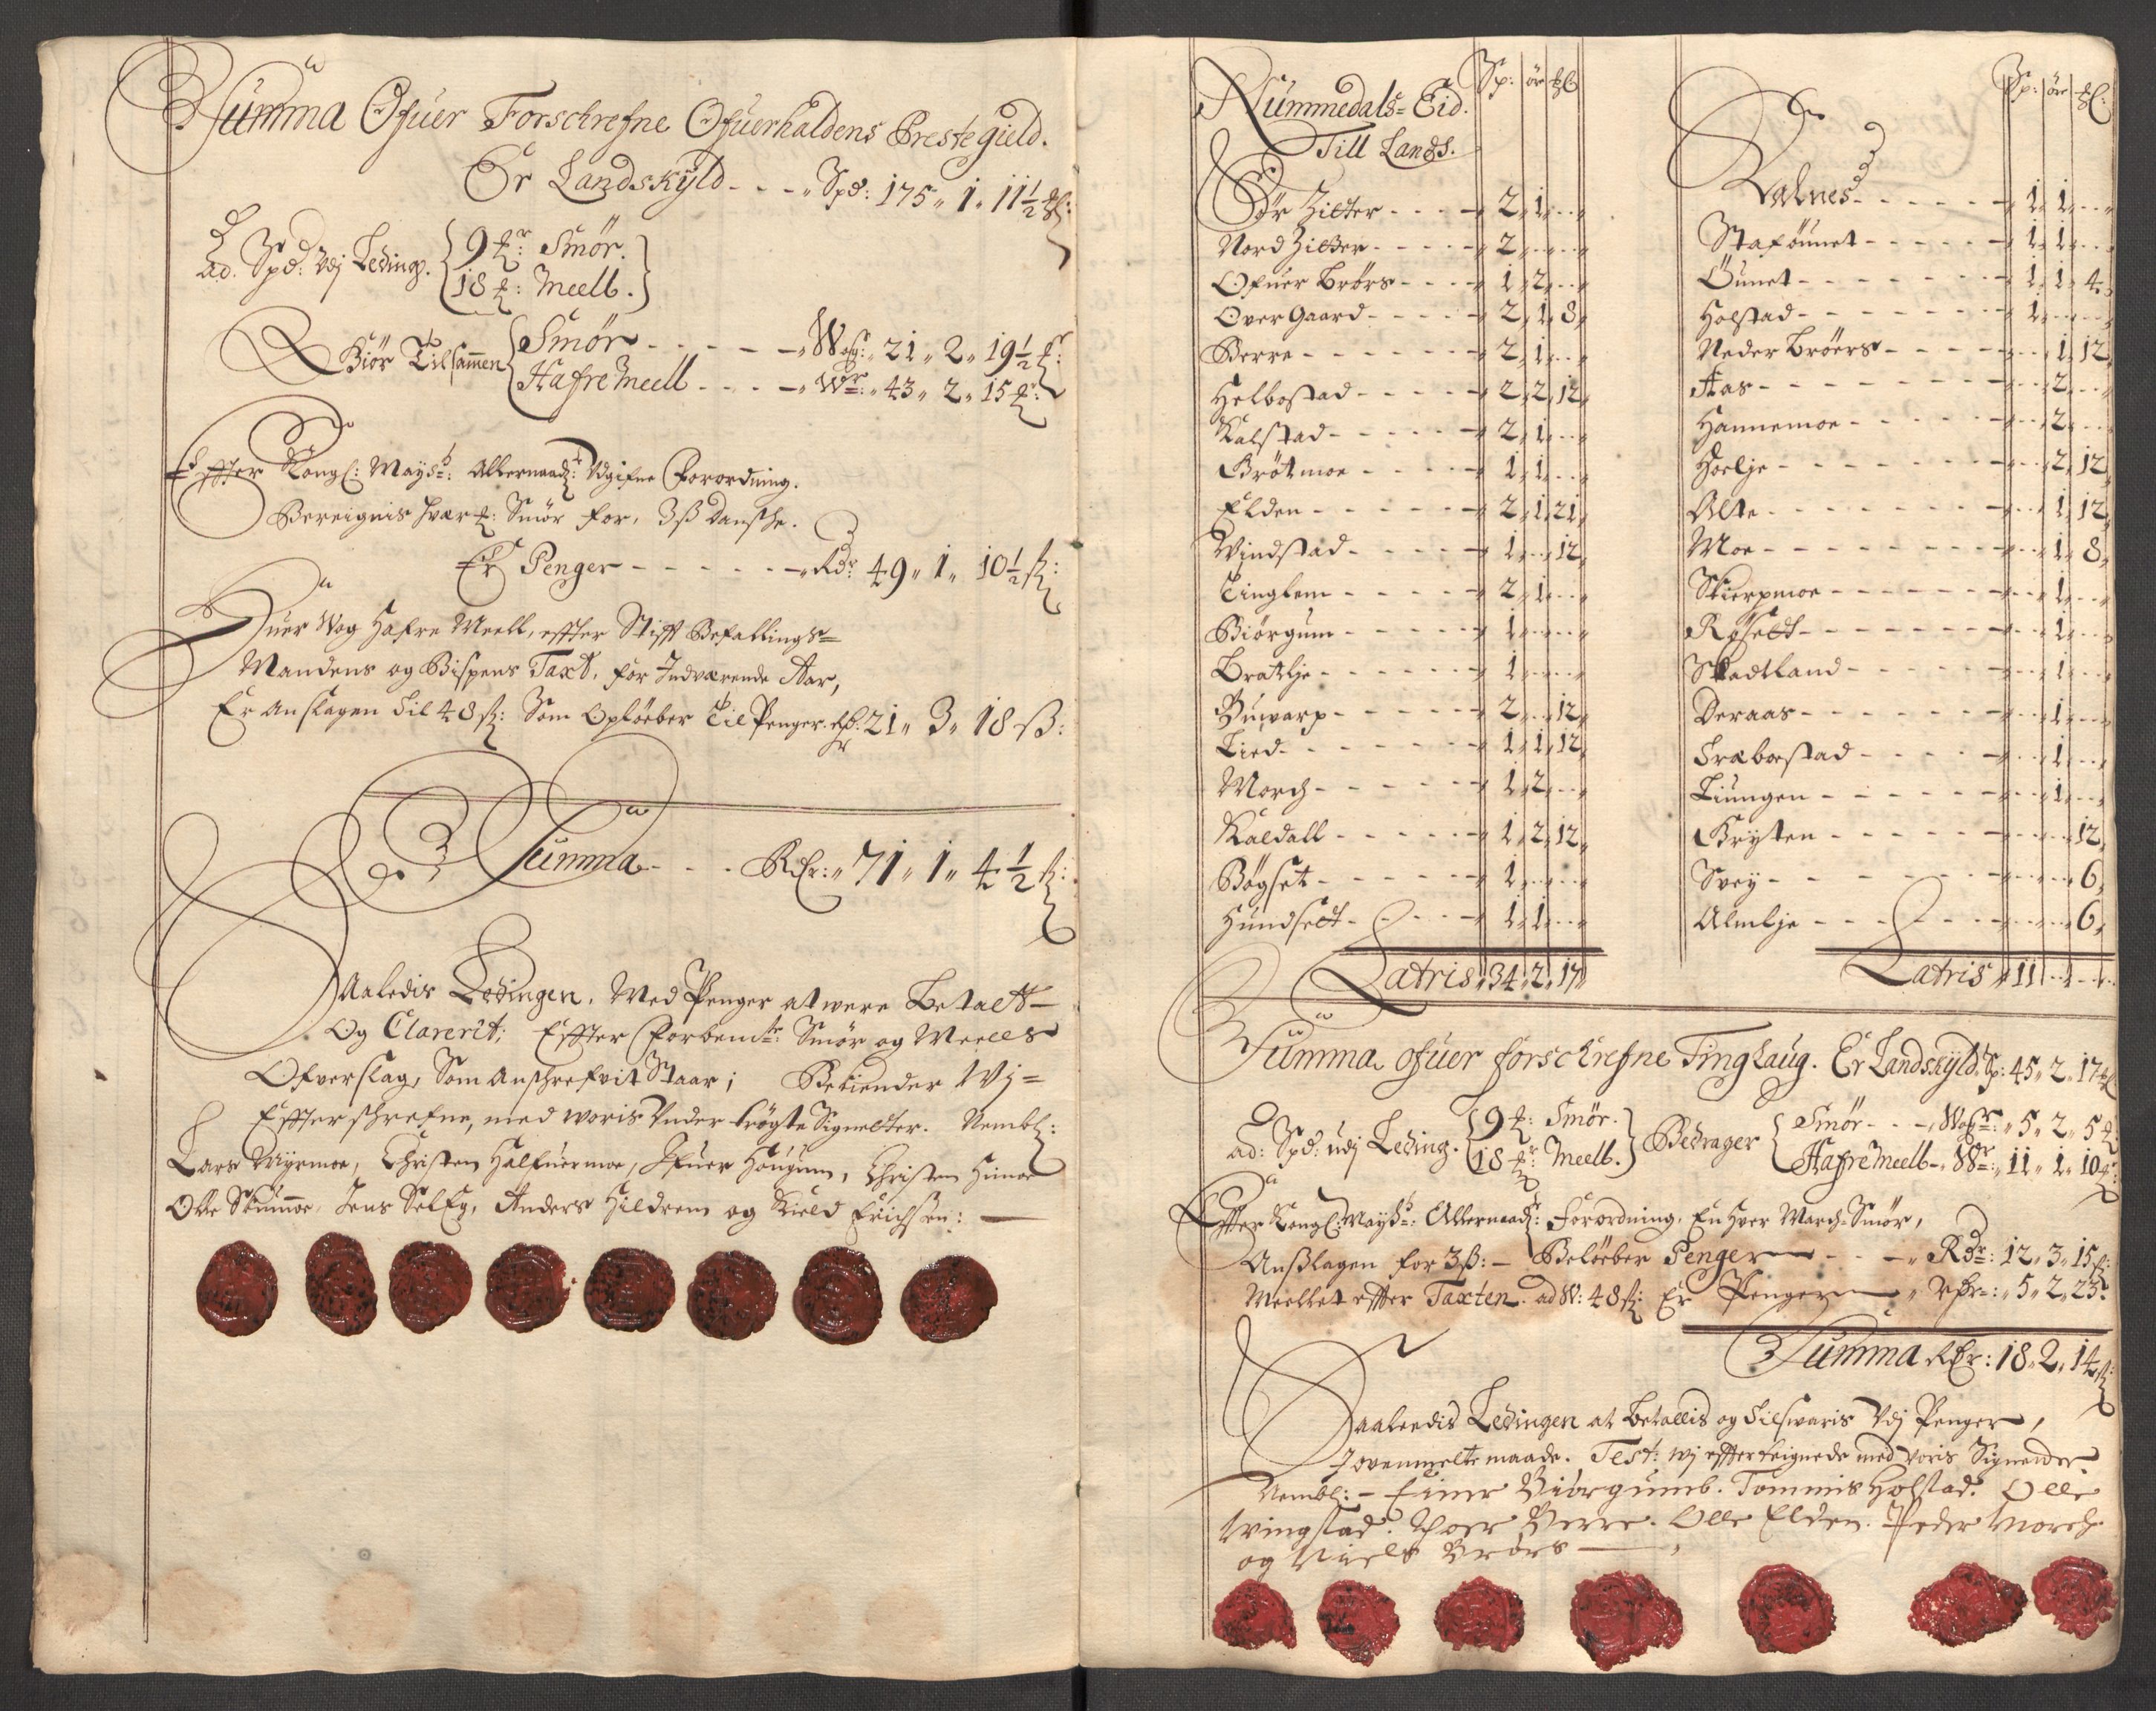 Summa Ofuer Forschrefne Ofuerhaldens Prestegield.
Er Landskyld - - - „ Spd: 175 „ 1 „ 11½ ℔:
ad. Spd: Vdj Leding. 9 ℔r: Smør.
18 ℔: Meell.
Giør Tilsamen Smør - - - - - „ Wogr: „ 21 „ 2 „ 19½ ℔r:
Hafre Meell - - - - „ Wr: „ 43 „ 2 „ 15 ℔r:
Effter Kongl: Mays: Allernaad: Vdgifne Forordning.
Bereignis hver ℔: Smør for, 3 ß danske.
Er Penger - - - - - - „ Rdr 49 „ 1 „ 10½ ß:
Huer Wog Hafre Meell, effter Stifft Befallings=
Mandens og Bispens Taxt, for Indværende Aar,
Er Anslagen til 48 ß: Som Opløeber Til Penger Rdr 21 „ 3 „ 18 ß:
Summa - - - Rdr: „ 71 „ 1 „ 4½ ß:
Saaledis Ledingen, Med Penger at were Betalt
Og Clarerit; Effter Forbemte: Smør og Meells
Ofverslag, Som Anschrefvit Staar; Bekiender Wj=
Effterschrefne, med woris Vnder trøgte Signetter. Nembl:
Lars Myrmoe, Christen Halfuermoe, Ifuer Hougum, Christen Himoe
Olle Skummoe, Jens Selkg, Anders Hildrem og Kield Erichsøn: —
Nummedals=Eid.
Till Lands.
Sp: | ør | ℔
Sør Hilter - - - - 2 „ 1 „ - - „
Nord Hilter - - - - 2 „ - „ - - „
Ofuer Brørs - - - - 1 „ 2 „ - - „
Over Gaard - - - - 2 „ 1 „ 8 „
Berre - - - - - - 2 „ 1 „ - - „
Helbostad - - - - - 2 „ 2 „ 12 „
Kalstad - - - - - 2 „ 1 „ - - „
Brøtmoe - - - - - 1 „ 1 „ - - „
Elden - - - - - - 2 „ 1 „ 21 „
Windstad - - - - - 1 „ - „ 12 „
Tinglem - - - - - 2 „ 1 „ - - „
Biørgum - - - - - 1 „ - „ - - „
Bratlje - - - - - 1 „ - „ - - „
Buvarp - - - - - 2 „ - „ 12 „
Lied - - - - - - 1 „ 1 „ 12 „
Morch - - - - - - 1 „ 2 „ - - „
Kaldall - - - - - 1 „ 2 „ 12 „
Bøgset - - - - - 1 „ - „ - - „
Hundsett - - - - - 1 „ 1 „ - - „
Latris „ 34 „ 2 „ 17 „
Sp: | ør | ℔:
Valnes - - - - - - 1 „ 1 „ - - „
Staføunet - - - - - 1 „ 1 „ - - „
Øunet - - - - - - 1 „ 1 „ 4 „
Holstad - - - - - - 1 „ - „ - - „
Neder Brøers - - - - - - „ 1 „ 12 „
Aas - - - - - - - - „ 2 „ - - „
Hannemoe - - - - - - „ 2 „ - - „
Hoelje - - - - - - - „ 2 „ 12 „
Alte - - - - - - - „ 1 „ 12 „
Moe - - - - - - - „ 1 „ 8 „
Skierpmoe - - - - - - „ 1 „ - - „
Røsett - - - - - - „ 1 „ - - „
Skadtland - - - - - - „ 1 „ - - „
Deraas - - - - - - „ 1 „ - - „
Træbostad - - - - - - „ 1 „ - - „
Liungen - - - - - - „ 1 „ - - „
Bryten - - - - - - - „ - „ 12 „
Svey - - - - - - - „ - „ 6 „
Almlje - - - - - - - „ - „ 6 „
Latris „ 11 „ - „ - „
Summa ofuer forschrefne Tinglaug. Er Landskyld. Sp: 45 „ 2 „ 17 ℔
ad: Spd: udj Leding. 9 ℔: Smør. Bedrager Smør - - - „ Wogr: „ 5 „ 2 „ 5 ℔
18 ℔r: Meell. Hafre Meell - „ Wr: „ 11 „ 1 „ 10 ℔r:
Effter Kongl: Mayts: Allernaad: Forordning. En Hver March Smør,
Anslagen for 3 ß: — Beløeber Penger - - - „ Rdr: 12 „ 3 „ 15 ß:
Meellet effter Taxten ad W: 48 ß: Er Penger „ Rdr: „ 5 „ 2 „ 23.
Summa Rdr: 18 „ 2 „ 14 ß:
Saaleedis Ledingen at Betallis og tilswaris Vdj Penger,
J ovenmelte maade. Test: wj effterteignede med voris Signeder
Nembl: - Einer Biørgumb. Tommis Holstad. Olle
Wingstad. Thoer Berre. Olle Elden. Peder Morch
og Niels Brørs —